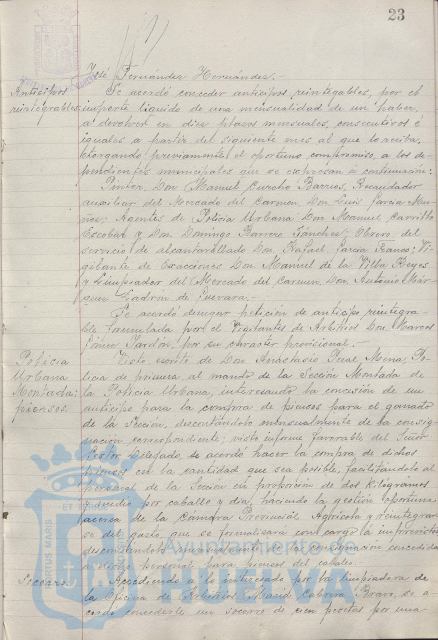 23
José Fernández Hernández.-
Anticipos
reintegrables
Se acordó conceder anticipos reintegrables, por el
importe líquido de una mensualidad de un haber,
a devolver en diez plazos mensuales, consecutivos é
iguales a partir del siguiente mes al que lo reciba,
otorgando previamente el oportuno compromiso, a los de-
pendientes municipales que se expresan a continuación:
Pintor, Don Manuel Barrios, Recaudador
auxiliar del Mercado del Carmen, Don Luis García Mu-
ñoz; Agentes de Policía Urbana Don Manuel Carrillo
Escobar y Don Domingo Barrero Sánchez; Obrero del
servicio de alcantarillado Don Rafael García Ramos; Vi-
gilante de Exacciones Don Manuel de la Villa Reyes
y Limpiador del Mercado del Carmen Don Antonio Már-
quez Ladrón de Guevara.-
Se acordó denegar petición de anticipo reintegra-
ble formulada por el Vigilante de Arbitrios Don Marcos
Gómez por su carácter provisional.-
Policía
Urbana
Montada:
piensos.
Visto escrito de Don Anastasio Mena, Po-
licía de primera al mando de la Sección Montada de
la Policía Urbana, interesando la concesión de un
anticipo para la compra de piensos para el ganado
de la Sección, descontándolo mensualmente de la consig-
nación correspondiente; visto informe favorable del Señor
Gestor Delegado, se acordó hacer la compra de dichos
piensos en la cantidad que sea posible, facilitándolo al
personal de la Sección en proporción de dos kilogramos
y medio por caballo y día, haciendo la gestión oportuna
acerca de la Cámara Provincial Agrícola y reintegrar-
se del gasto, que se formalizará con cargo a imprevistos
descontándolo mensualmente de la consignación concedida
a dicho personal para piensos del caballo.
Socorro
Accediendo a lo interesado por la limpiadora de
la Oficina de Arbitrios María Cabrera Bravo, se a-
cordó concederle un socorro de cien pesetas por una
Ayuntamiento de
PORTUS MARIS
ET